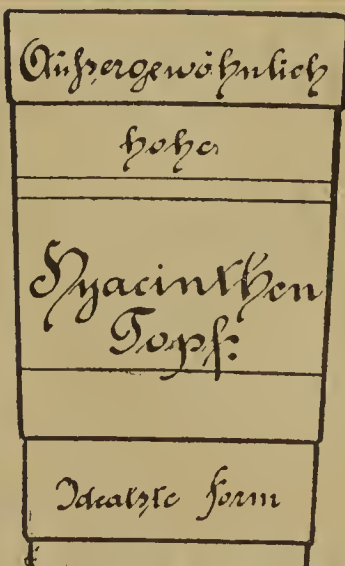 Außergewöhnlich
hoher
Hyacinthen
Topf:
Idealste Form